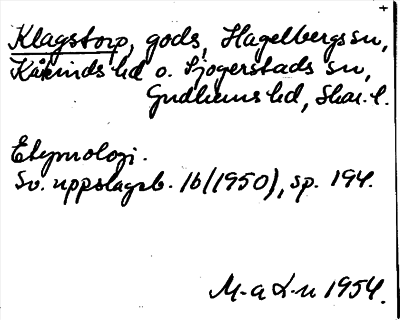 Klagstorp, gods, Hagelbergs sn,
Kåkinds hd o. Sjogerstads sn,
Gudhems hd, Skar. l.
Etymologi.
Sv. uppslagsb. 16 (1950), sp. 194.
M-a L-n 1954.